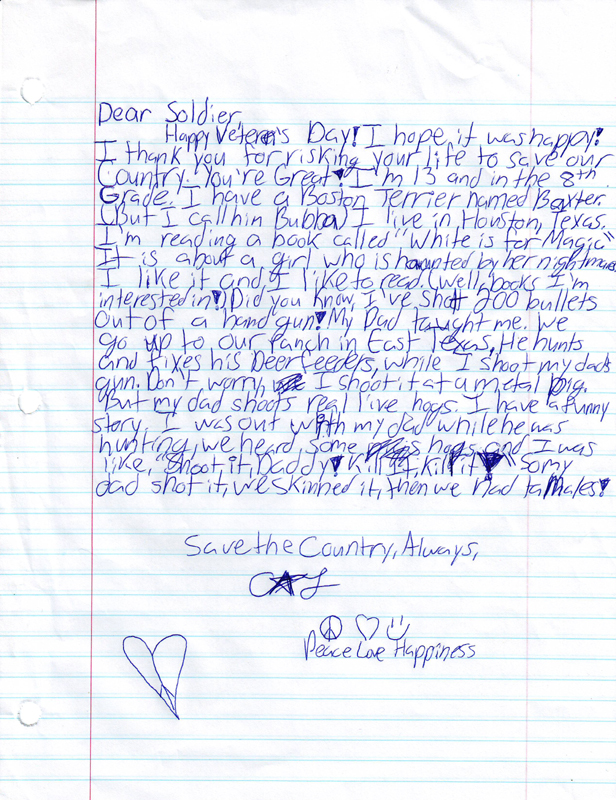 Dear Soldier,
Happy Veteran's Day! I hope it was happy!
I thank you for risking your life to save our
Country. You're Great! I'm 13 and in the 8th
Grade. I have a Boston Terrier named Baxter.
(But I call hin Bubba) I live in Houston, Texas.
I'm reading a book called "White is for Magic"
It is about a girl who is haunted by her nightmares
I like it and I like to read. (Well, books I'm
interested in!) Did you know, I've shot 200 bullets
out of a hand gun! My Dad taught me. We
go up to our ranch in East Texas, He hunts
and fixes his Deer feeders, while I shoot my dads
gun. Don't worry, I shoot it at a metal pig.
But my dad shoots real live hogs. I have a funny
story, I was out with my dad while he was
hunting, we heard some hogs, and I was
like, "Shoot it, Daddy! Kill it, Kill it!" So my
dad shot it, we skinned it, then we had tamales!
Save the Country, Always,
Peace Love Happiness